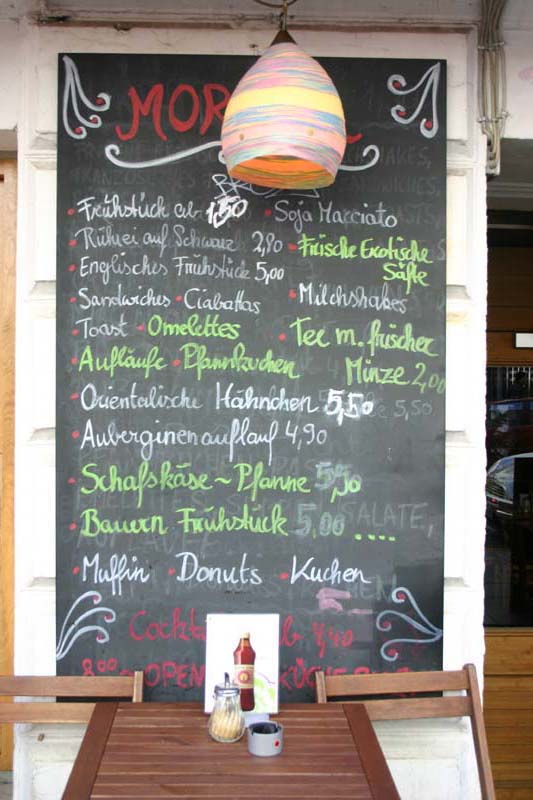 MOR
Frühstück ab 1,50 • Soja Macciato
• Rührei auf Schwarz. 2,80 • Frische Exotische
Säfte
• Englisches Frühstück 5,00
Sandwiches • Ciabattas • Milchshakes
• Toast • Omelettes • Tee m. frischer
Münze 2,00
• Aufläufe • Pfannkuchen
• Orientalische Hähnchen 5,50
• Auberginenauflauf 4,90
• Schafskäse~Pfanne 5,50
• Bauern Frühstück 5,00 ....
• Muffin • Donuts • Kuchen
Cockta
800 OPEN